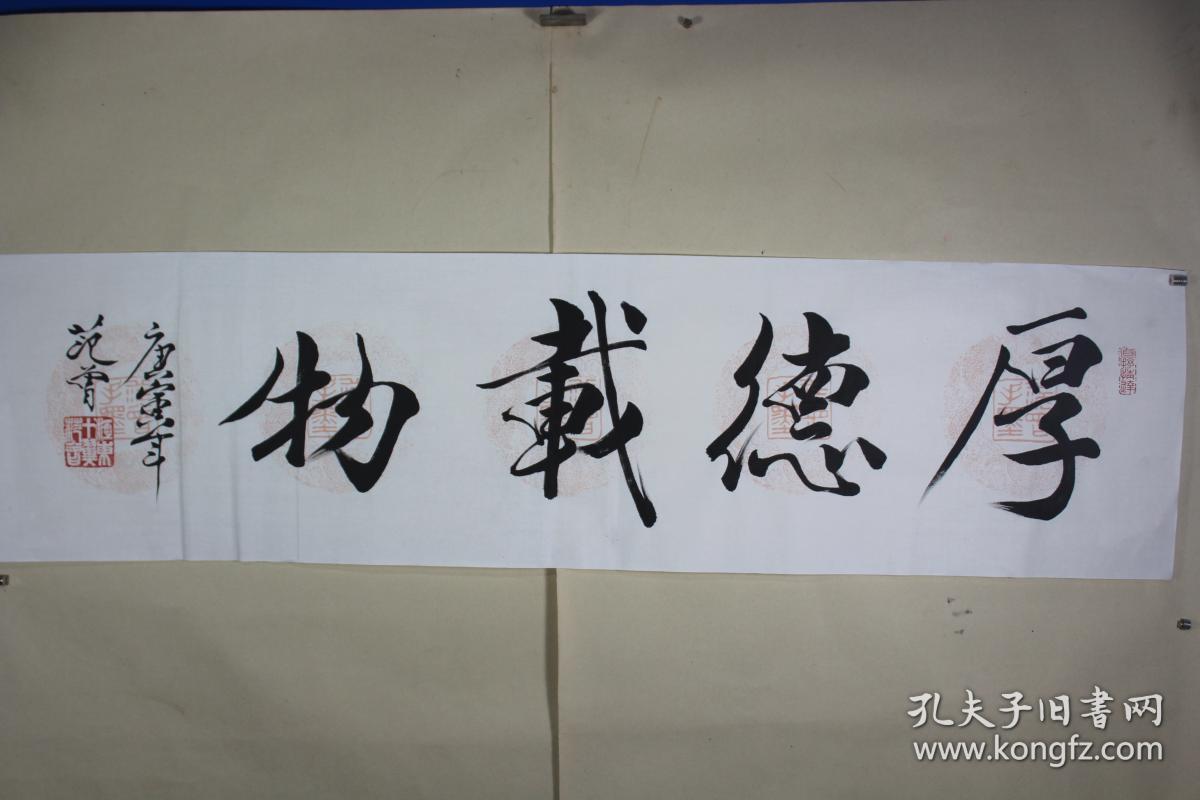 厚德載物
庚寅年
范曾
孔夫子旧書网
www.kongfz.com